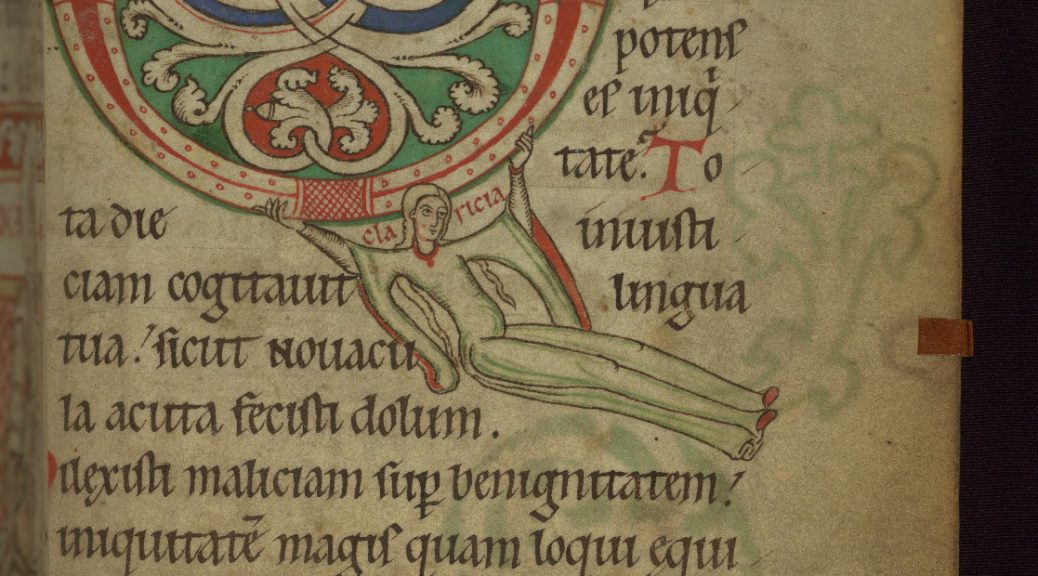 potens
es iniqͥ
tate. To
claricia
ta die iniusti
ciam cogitauit lingua
tua. sicut nouacu
la acuta fecisti dolum.
Dilexisti maliciam suꝑ benignitatem.
iniquitatē magis quam loqui equi